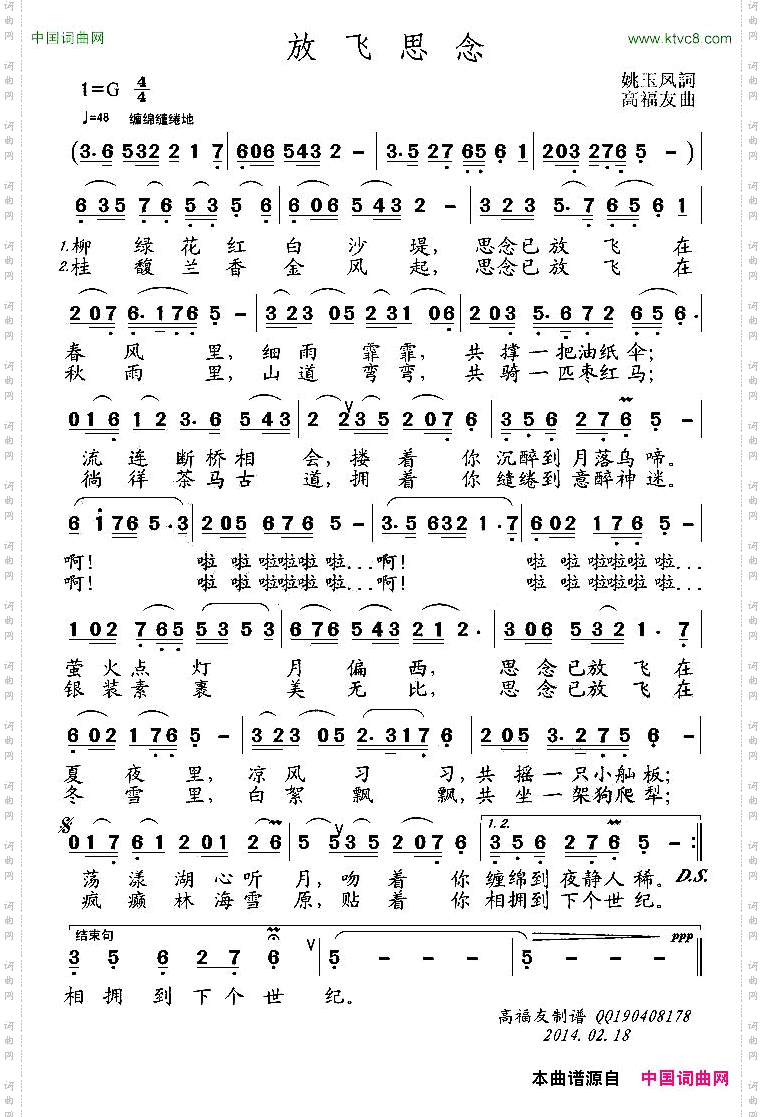 中国词曲网
放飞思念
www.ktvc8.com
1=G 4/4
姚玉凤詞
高福友曲
♩=48 缠绵缱绻地
(3·6 532 2 1 7 | 606 543 2 - | 3·5 27 65 6 1 | 203 276 5 - )
6 35 7 6 5 3 5 6 | 6 06 5 43 2 - | 3 2 3 5·7 6 5 6 1
1.柳 绿 花 红 白 沙 堤, 思念已放 飞 在
2.桂 馥 兰 香 金 风 起, 思念已放 飞 在
2 07 6·176 5 - | 3 23 05 2 31 06 | 2 03 5·672 6 56·
春 风 里, 细雨 霏霏, 共 撑一把油纸伞;
秋 雨 里, 山道 弯弯, 共 骑一匹枣红马;
016 12 3·6 543 | 2 235 207 6 | 3 5 6 27 6 5 -
流 连 断桥相 会, 搂着 你 沉醉到月落乌啼。
徜 徉 茶马古 道, 拥着 你 缱绻到意醉神迷。
6 1765·3 | 205 676 5 - | 3·5 632 1·7 | 602 176 5 -
啊! 啦 啦 啦啦啦 啦...啊! 啦 啦 啦啦啦 啦...
啊! 啦 啦 啦啦啦 啦...啊! 啦 啦 啦啦啦 啦...
1 02 7 65 5 3 5 3 | 676 543 21 2· | 3 06 5 532 1·7
萤 火 点 灯 月 偏 西, 思 念已放 飞在
银 装 素 裹 美 无 比, 思 念已放 飞在
6 02 176 5 - | 3 23 05 2·317 6 | 2 05 3·275 6·
夏 夜 里, 凉风 习 习,共 摇 一 只小舢板;
冬 雪 里, 白絮 飘 飘,共 坐 一 架狗爬犁;
017 61 201 26 | 5 535 207 6 | 1.2. 3 5 6 27 6 5 - :||
荡 漾 湖心听 月, 吻着 你 缠绵到 夜静人稀。D.S.
疯 癫 林海雪 原, 贴着 你 相拥到 下个世纪。
结束句 ppp
3 5 6 27 6 | 5 - - - | 5 - - - ||
相 拥 到 下 个 世 纪。
高福友制谱 QQ190408178
2014.02.18
本曲谱源自 中国词曲网